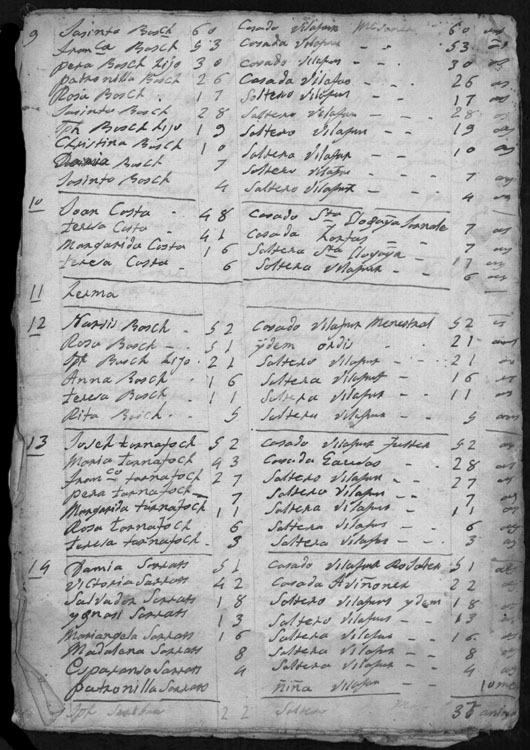 9 Jasinto Bosch 60 Casado Vilapur Mestre 60 as
Franca Bosch 53 Casada Vilapur - - 53 as
pera Bosch hijo 30 Casado Vilapur - - 30 as
patronilla Bosch 26 Casada Vilapur - - 26 as
Rosa Bosch - 17 Soltera Vilapur - - 17 as
Jasinto Bosch 28 Soltero Vilapur - - 28 as
Jph Bosch hijo 19 Soltero Vilapur - - 19 as
Christina Bosch 10 Soltera Vilapur - - 10 as
Damia Bosch 7 Soltero Vilapur - - 7 as
Jasinto Bosch 4 Soltero Vilapur - - 4 as
10 Joan Costa - 48 Casado Sta
teresa Costa - 41 Casada 7 as
Margarida Costa 16 Soltera Sta 17 as
teresa Costa - 6 Soltera Vilapur - - 6 as
11 herma
12 Narsis Bosch - 52 Casado Vilapur Menestral 52 as
Rosa Bosch - 51 ydem ordis - - 21 as
Jph Bosch hijo 21 Soltero Vilapur - - 21 as
Anna Bosch 16 Soltera Vilapur - - 16 as
teresa Bosch 11 Soltera Vilapur - - 11 as
Rita Bosch 5 Soltera Vilapur - - 5 as
13 Joseph tornafoch 52 Casado Vilapur 52 as
Maria tornafoch 43 Casada 28 as
Franco tornafoch 27 Soltero Vilapur - - 27 as
pera tornafoch - 7 Soltero Vilapur - - 7 as
Margarida tornafoch 11 Soltera Vilapur - - 11 as
Rosa tornafoch 6 Soltera Vilapur - - 6 as
teresa tornafoch 3 Soltera Vilapur - - 3 as
14 Damia Sorrats 51 Casado Vilapur 51 as
Victoria Sarrats 42 Casada Aviñonet 22
Salvador Sorrats 18 Soltero Vilapur ydem 18 as
ygnasi Sorrats 13 Soltero Vilapur - - 13 as
Mariangela Sorrats 16 Soltera Vilapur - - 16 as
Madalena Sorrats 8 Soltera Vilapur - - 8 as
Esparansa Sarrats 4 Soltera Vilapur - - 4 as
patronilla Sorrats ñiña Vilapur - - 10 me
Jph 22 Soltero 36